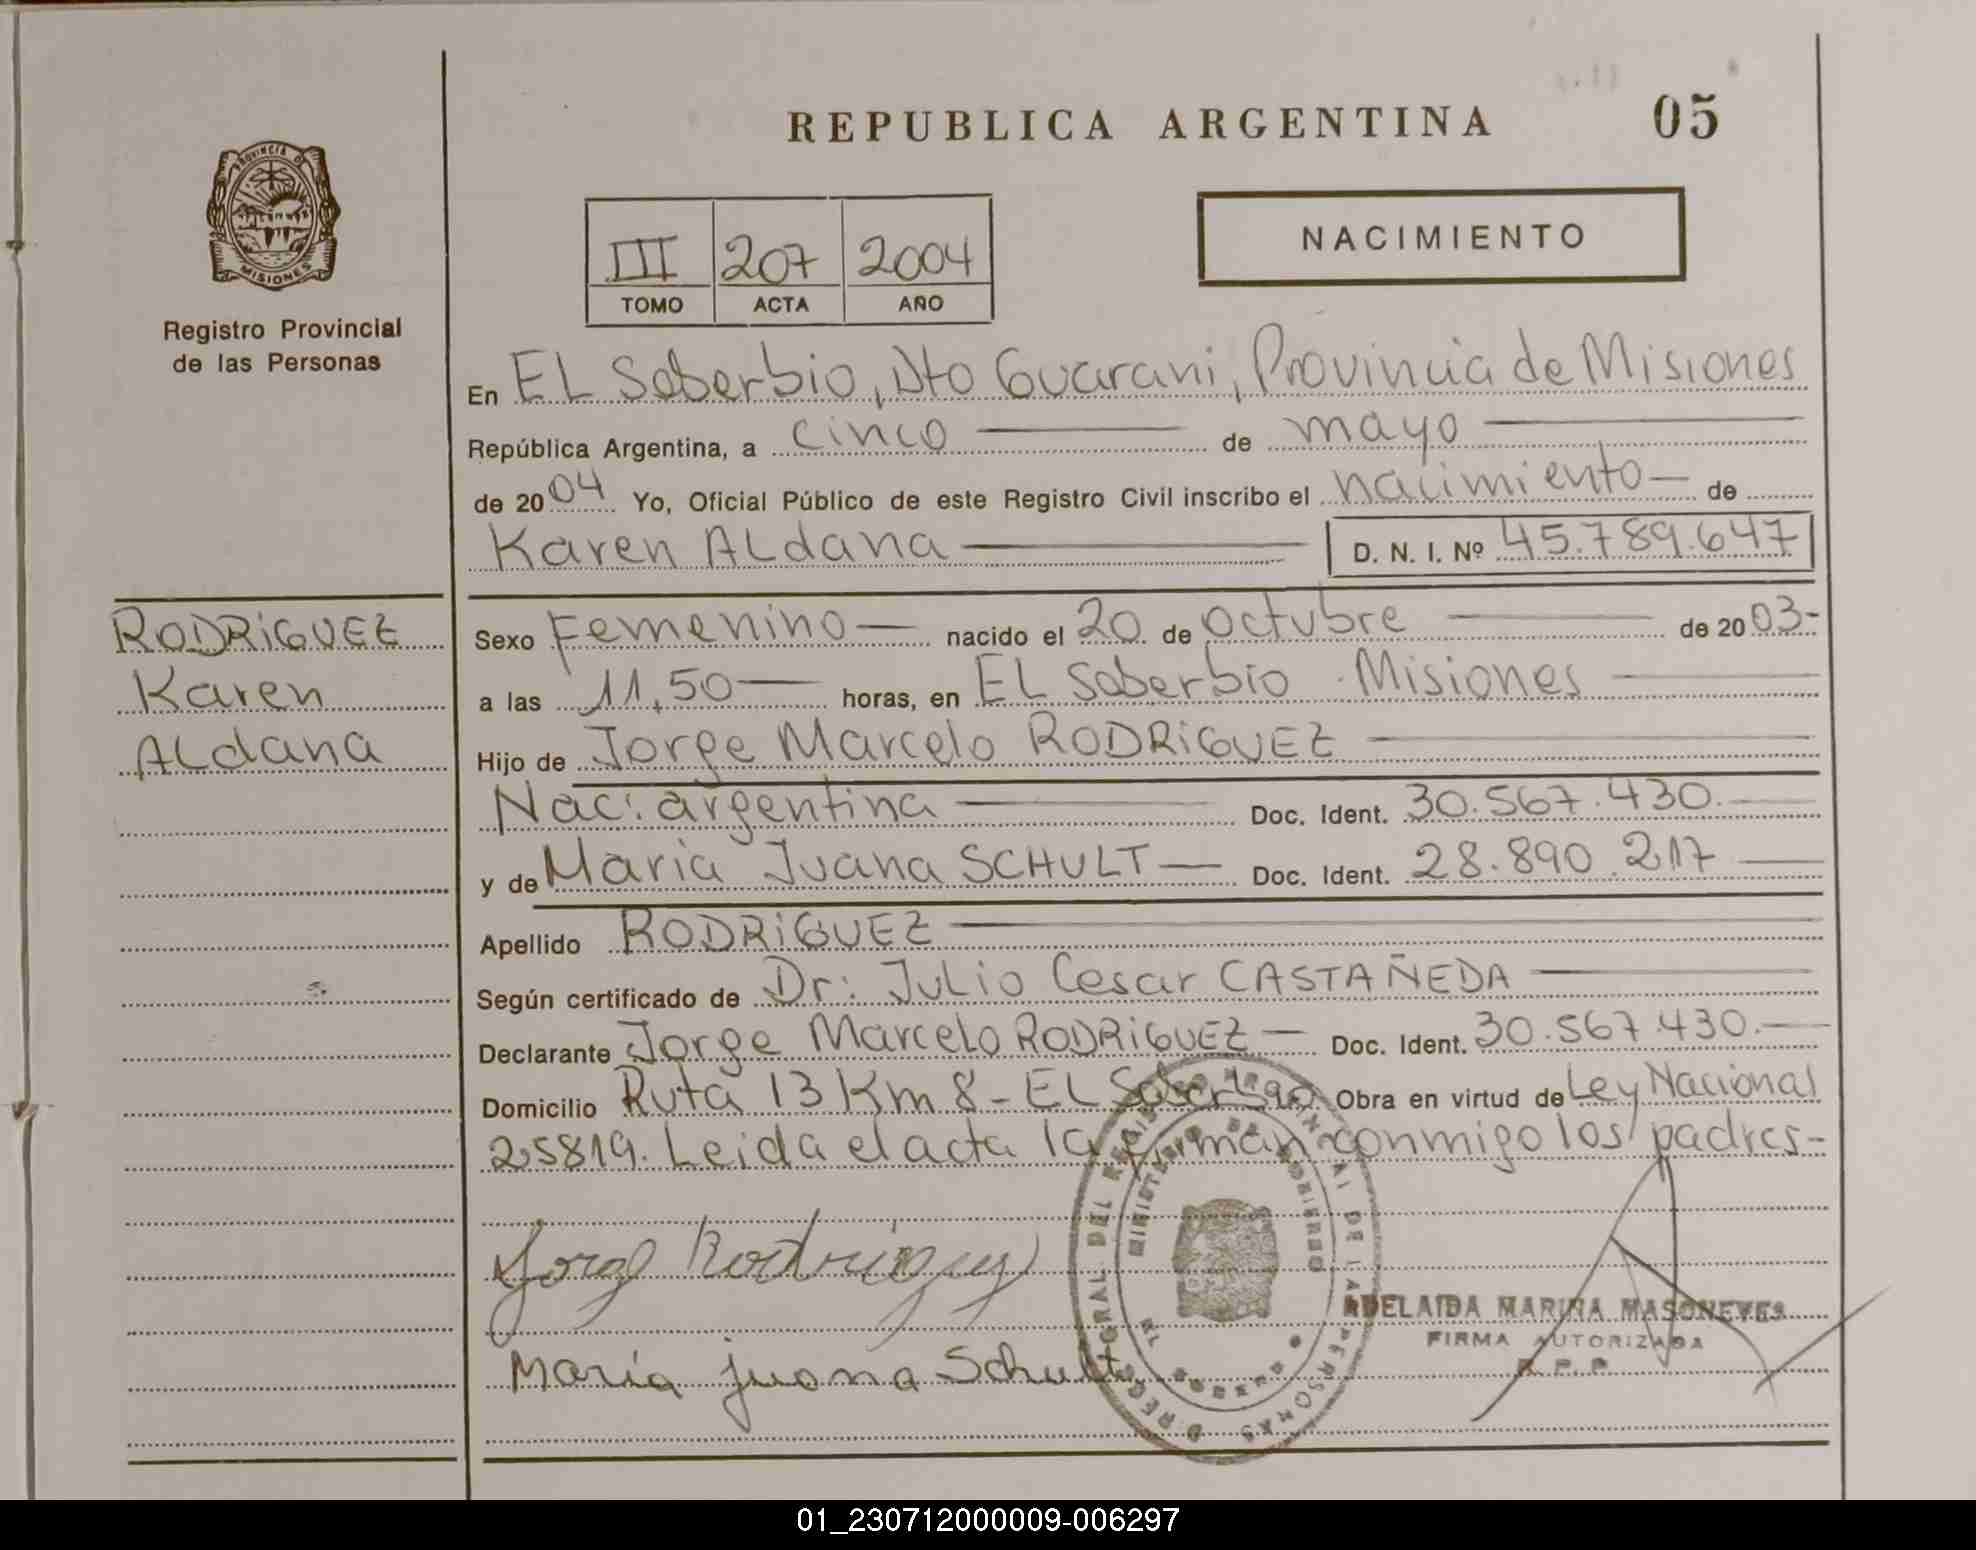 REPUBLICA ARGENTINA 05
PROVINCIA DE
MISIONES
Registro Provincial
de las Personas
III 207 2004
TOMO ACTA AÑO
NACIMIENTO
En EL Soberbio, Dto Guarani, Provincia de Misiones
República Argentina, a cinco de mayo
de 2004 Yo, Oficial Público de este Registro Civil inscribo el nacimiento de
Karen ALdana D. N. I. Nº 45.789.647
RODRiGUEZ
Karen
ALdana
Sexo Femenino nacido el 20 de octubre de 2003-
a las 11,50 horas, en EL Soberbio - Misiones
Hijo de Jorge Marcelo RODRiGUEZ
Nac: argentina Doc. Ident. 30.567.430.
y de Maria Juana SCHULT Doc. Ident. 28.890.217
Apellido RODRiGUEZ
Según certificado de Dr: Julio Cesar CASTAÑEDA
Declarante Jorge Marcelo RODRiGUEZ Doc. Ident. 30.567.430.
Domicilio Ruta 13 Km 8 - EL Soberbio Obra en virtud de Ley Nacional
25819. Leida el acta la firman conmigo los padres-
Jorge Rodriguez
Maria juana Schult
ADELAIDA MARINA MASONEVES
FIRMA AUTORIZADA
R.P.P.
01_230712000009-006297